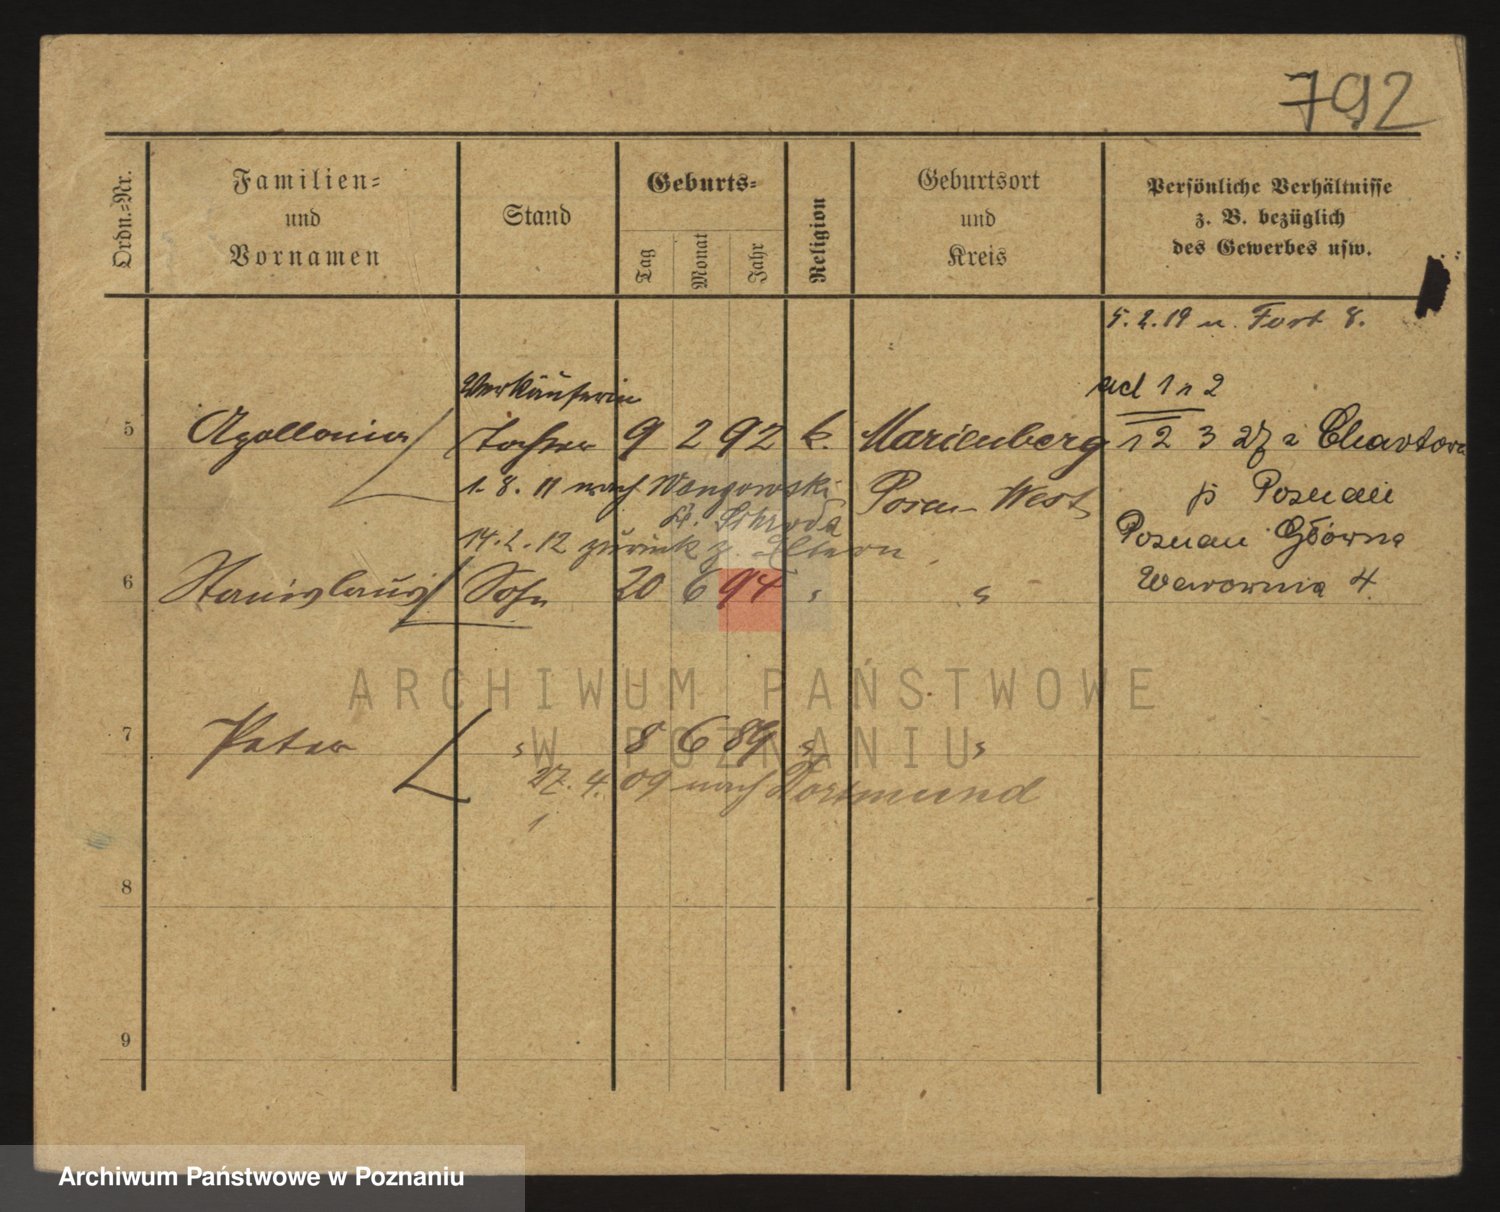 792
Ordn.-Nr.
Familien-
und
Vornamen
Stand
Geburts-
Tag
Monat
Jahr
Religion
Geburtsort
und
Kreis
Persönliche Verhältnisse
z. B. bezüglich
des Gewerbes usw.
5. 2. 19 n. Fort 8.
Verkäuferin
ad 1 n 2
5 Apollonia Tochter 9 2 92 k. Marienberg 12 3 27 z
1. 8. 11 nach Wengorski Posen West p Poznań
Kr. Schroda
14. 2. 12 zurück z. Eltern Poznań Główna
6 Stanislaus Sohn 20 6 94 " " Wawrownia 4
7 Peter " 8 6 89 " "
27. 4. 09 nach Dortmund
8
9
ARCHIWUM PAŃSTWOWE
W POZNANIU
Archiwum Państwowe w Poznaniu